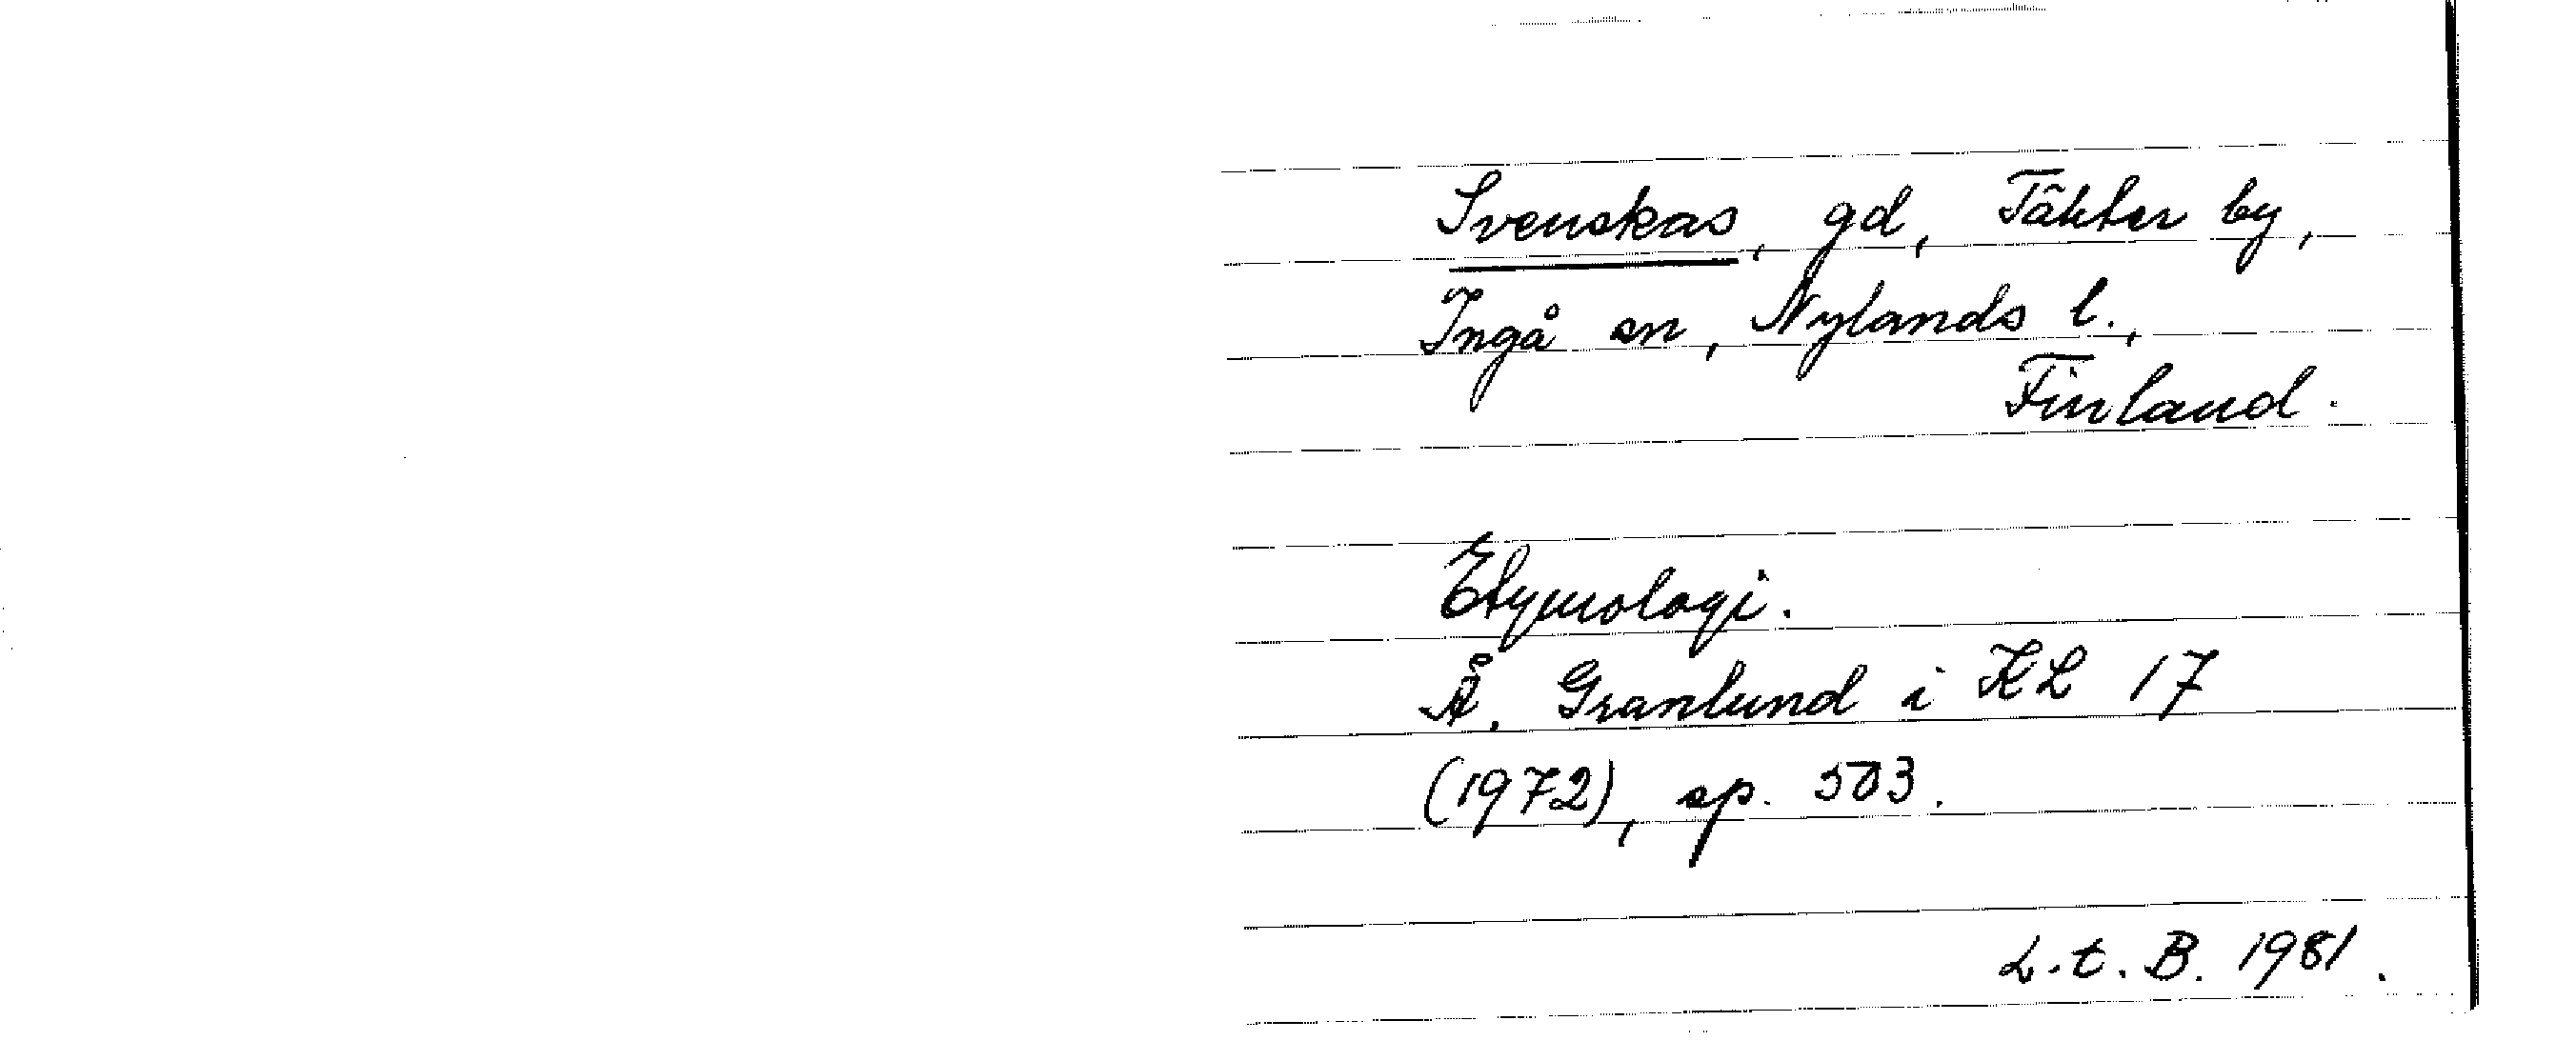 Svenskas, gd, Täkter by,
Ingå sn, Nylands l.,
Finland.
Etymologi.
Å. Granlund i KL 17
(1972), sp. 503.
L.t.B. 1981.